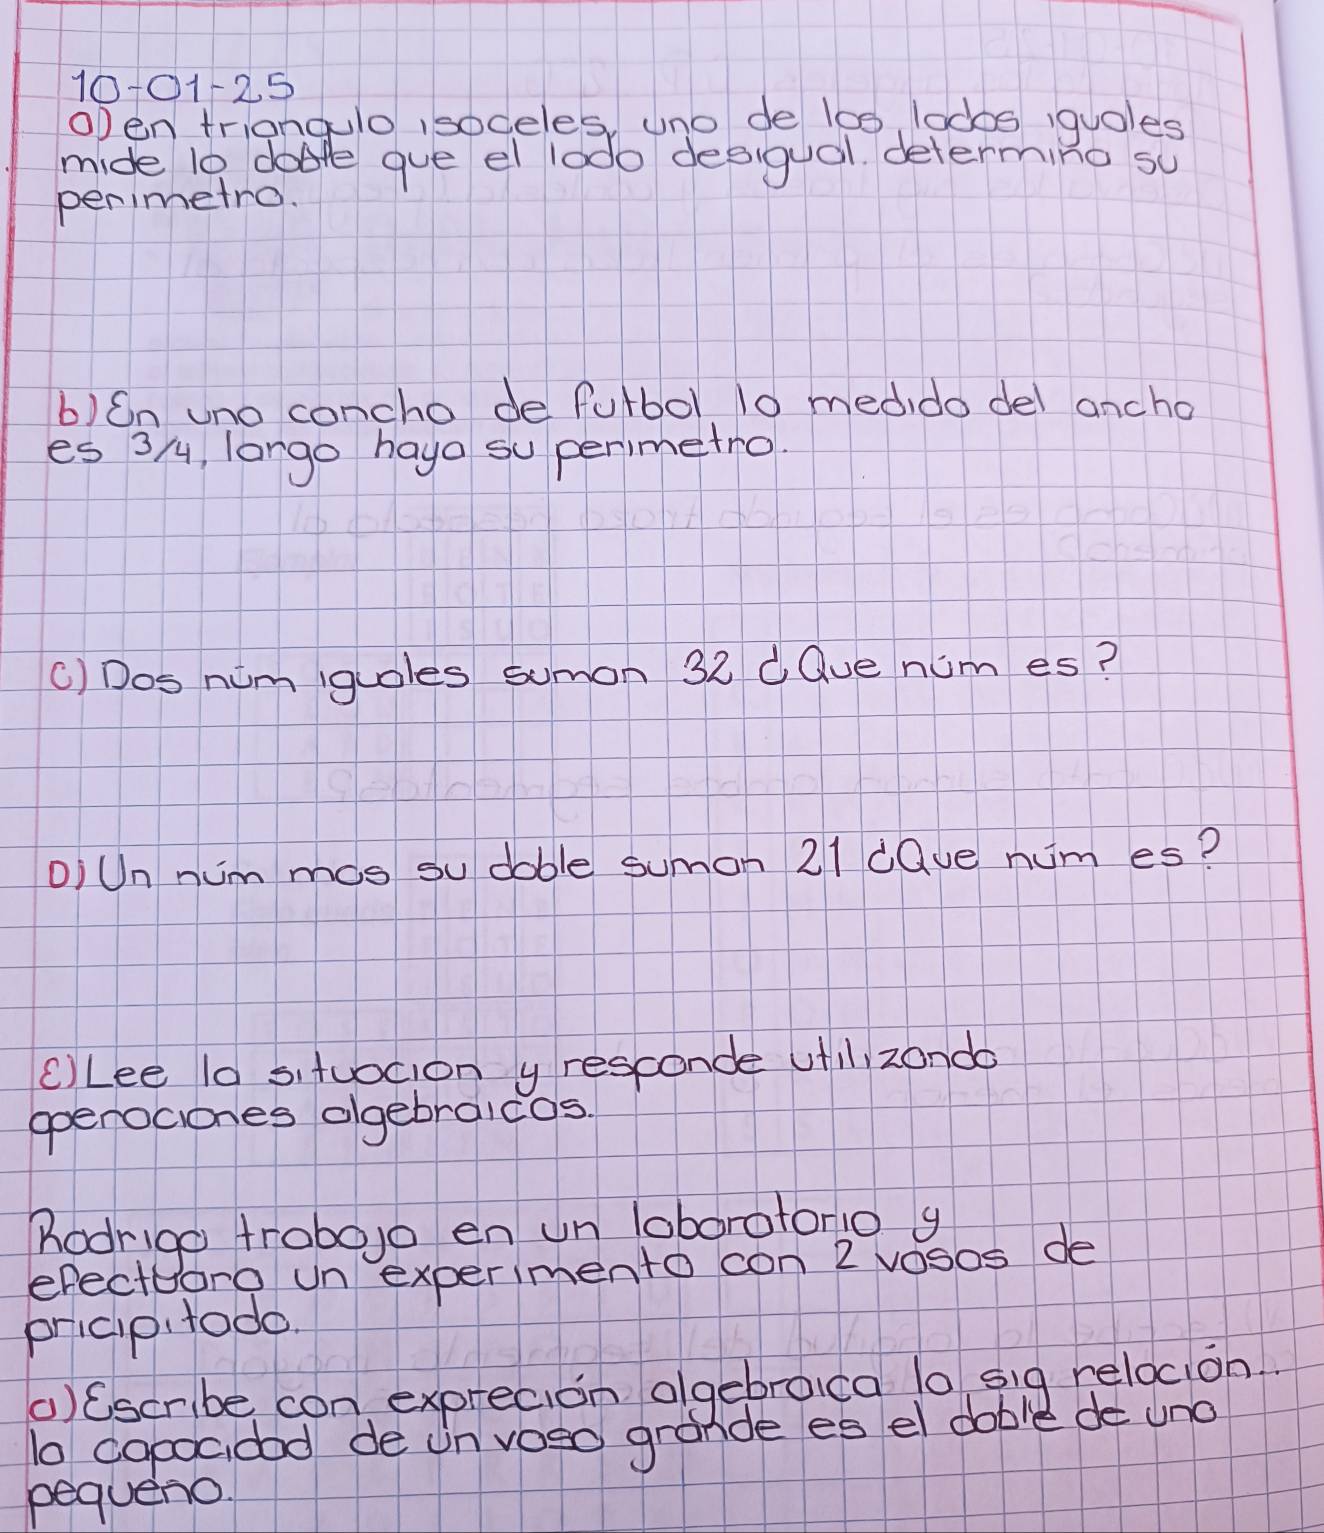 10-01-25
a) en triangulo isoceles, uno de los lados iguales
mide lo doble que el lado desigual. determina su
perimetro.
b) En una concha de futbol la medida del ancho
es 3/4, largo haya su perimetro.
C) Dos núm iguales suman 32 ¿Que núm es?
D) Un núm mas su doble suman 21 ¿Que núm es?
E) Lee la situacion y responde utilizando
operaciones algebraicas.
Rodrigo trabajo en un laboratorio y
efectuara un experimento con 2 vasos de
pricipitado.
a) Escribe con exprecion algebraica la sig relación..
la capacidad de un vaso grande es el doble de uno
pequeno.